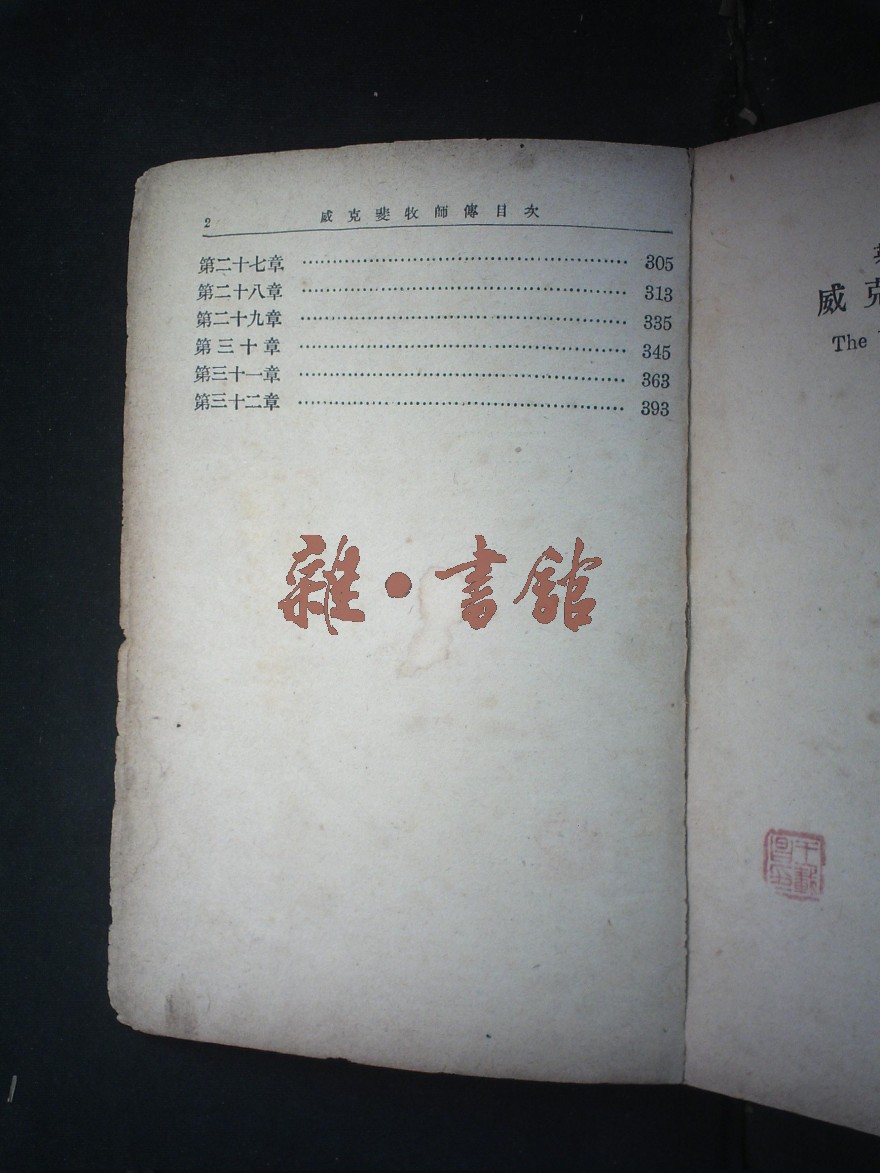 2
威克斐牧師傳目次
第二十七章 305
第二十八章 313
第二十九章 335
第三十章 345
第三十一章 363
第三十二章 393
雜·書館
威克
The